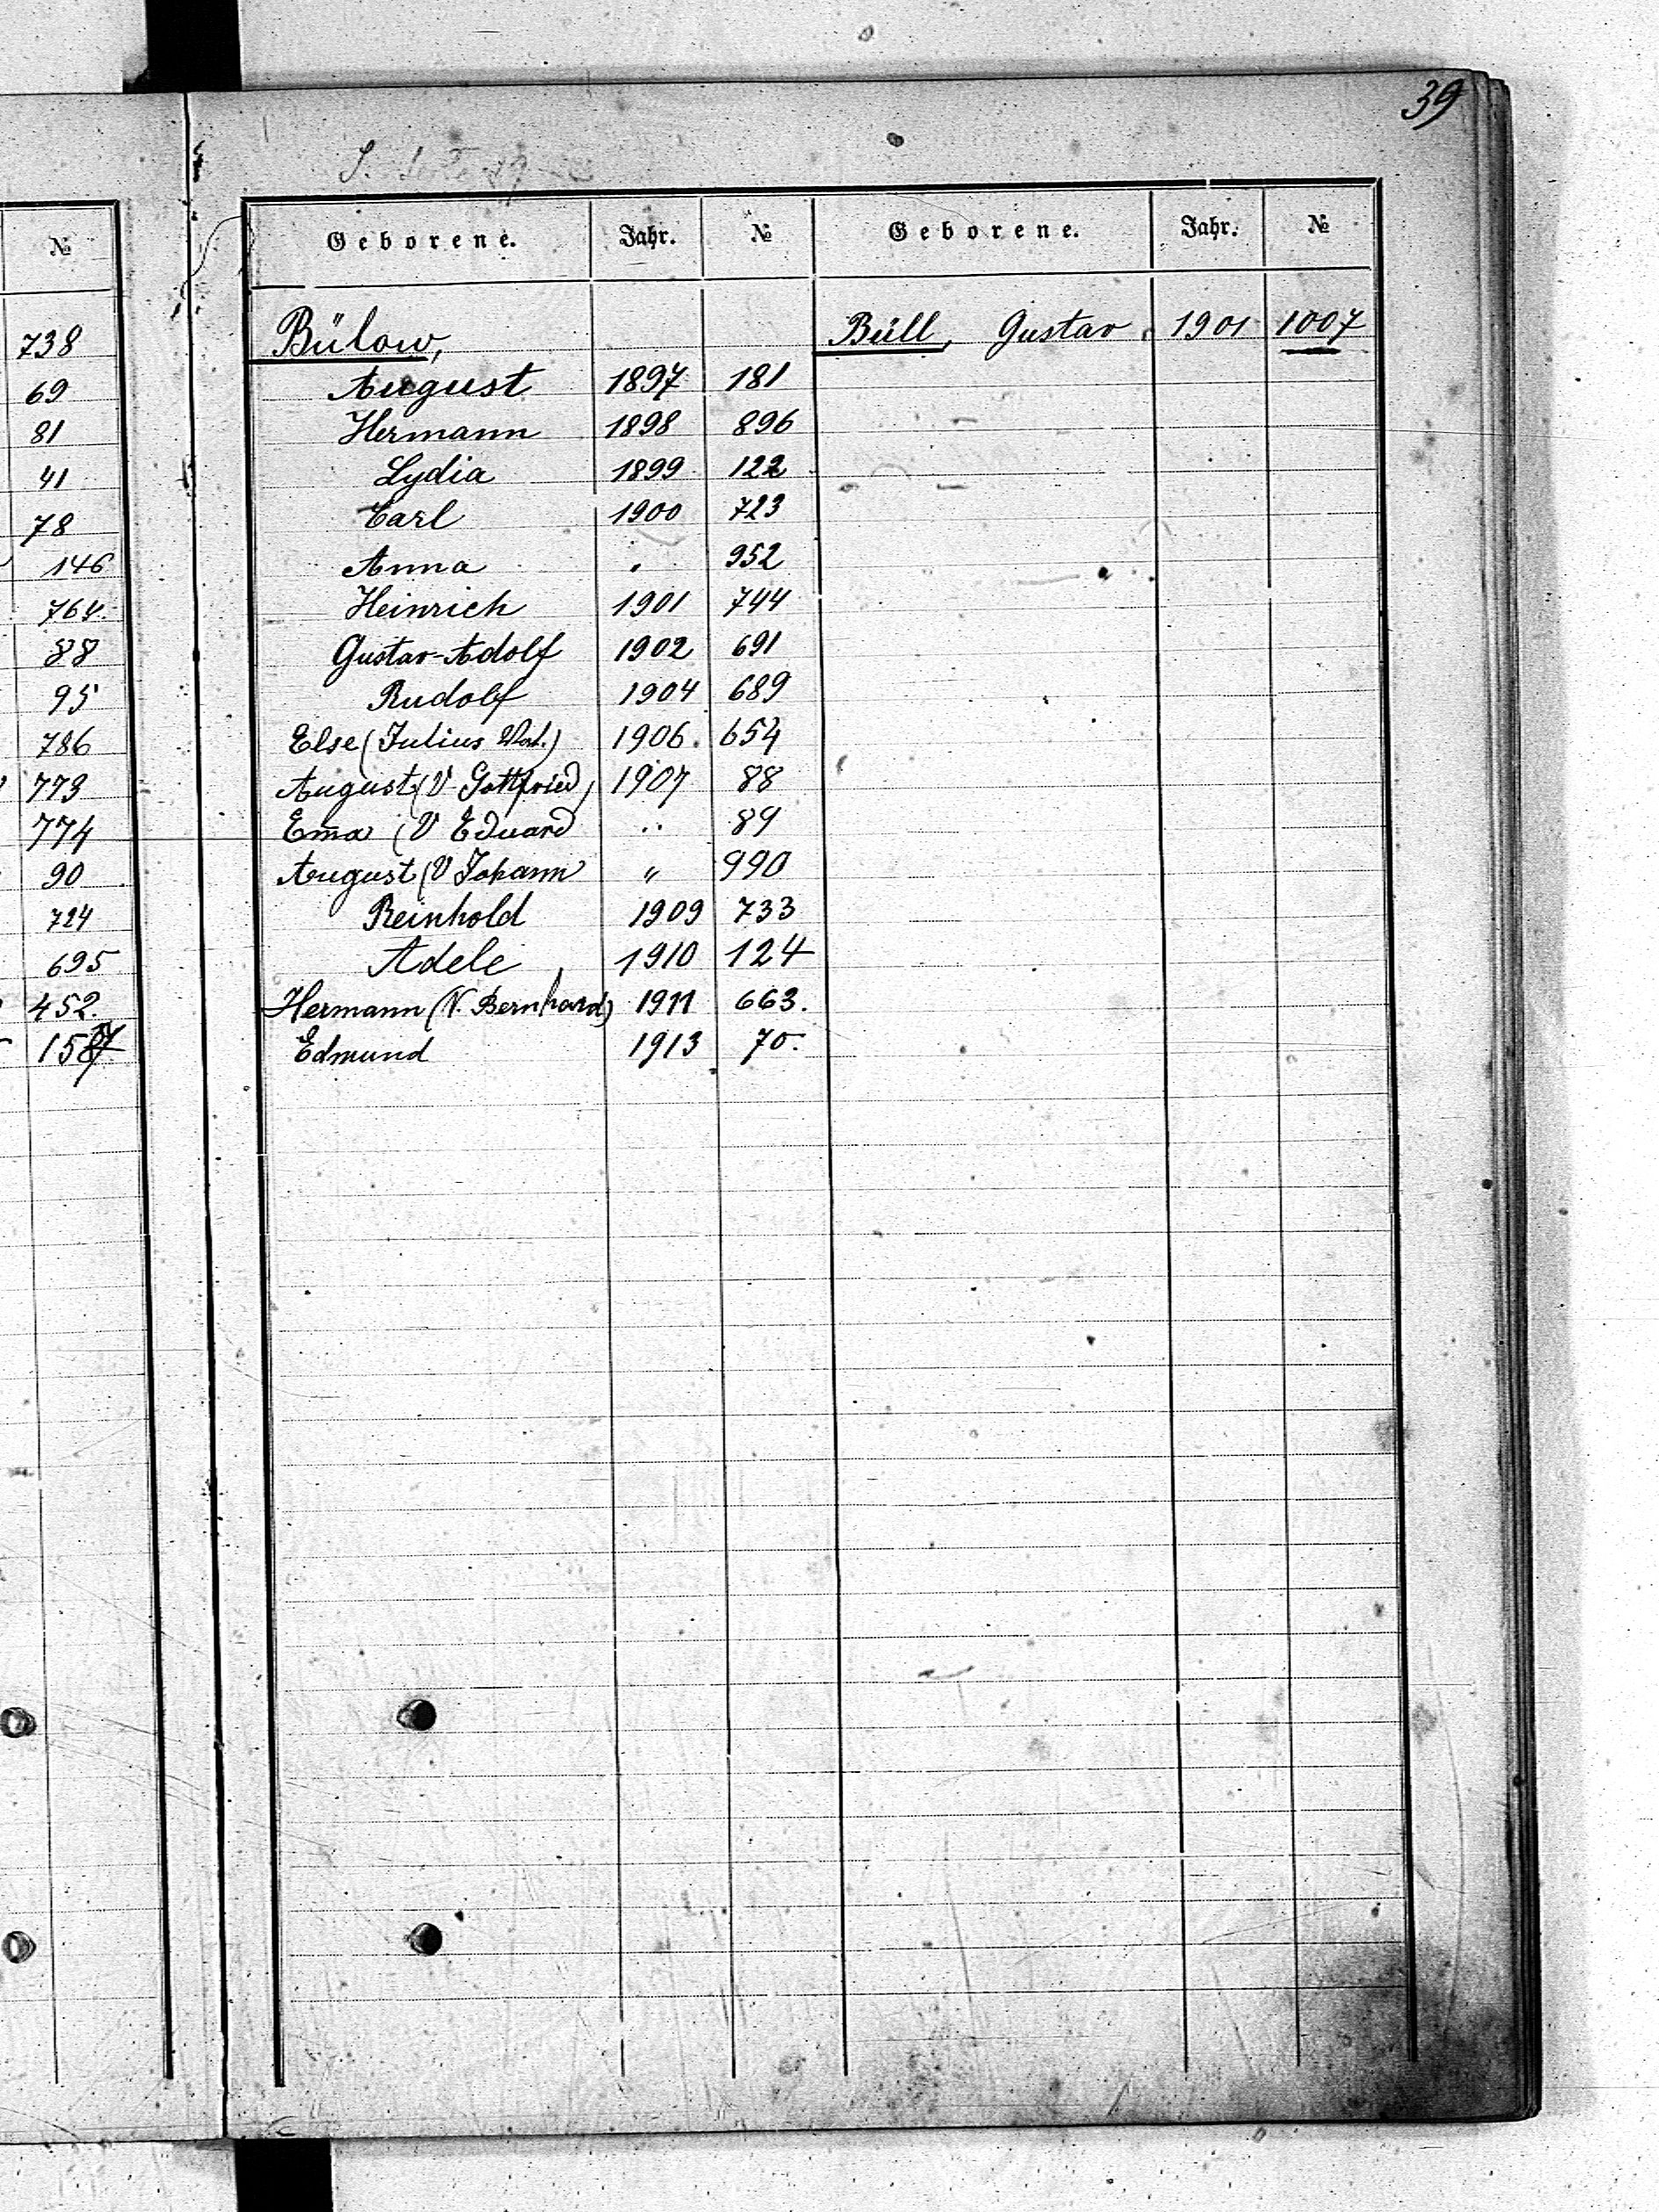 39
№
738
69
81
41
78
146
764.
88
95
786
773
774
90
724
695
452.
157
Geborene. Jahr. № Geborene. Jahr. №
Bülow, Büll, Gustav 1901 1007
August 1897 181
Hermann 1898 896
Lydia 1899 122
Carl 1900 723
Anna . 952
Heinrich 1901 744
Gustav-Adolf 1902 691
Rudolf 1904 689
Else (Julius Vat.) 1906. 654
August (V Gottfried) 1907 88
Em̅a (V Eduard " 89
August (V Johann " 990
Reinhold 1909 733
Adele 1910 124
Hermann (V. Bernhard) 1911 663.
Edmund 1913 70.